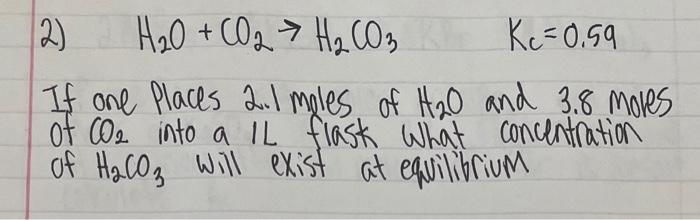 2) H₂O + CO₂ → H₂CO₃ Kc=0.59
If one Places 2.1 moles of H₂O and 3.8 moves
of CO₂ into a 1L flask what concentration
of H₂CO₃ will exist at equilibrium